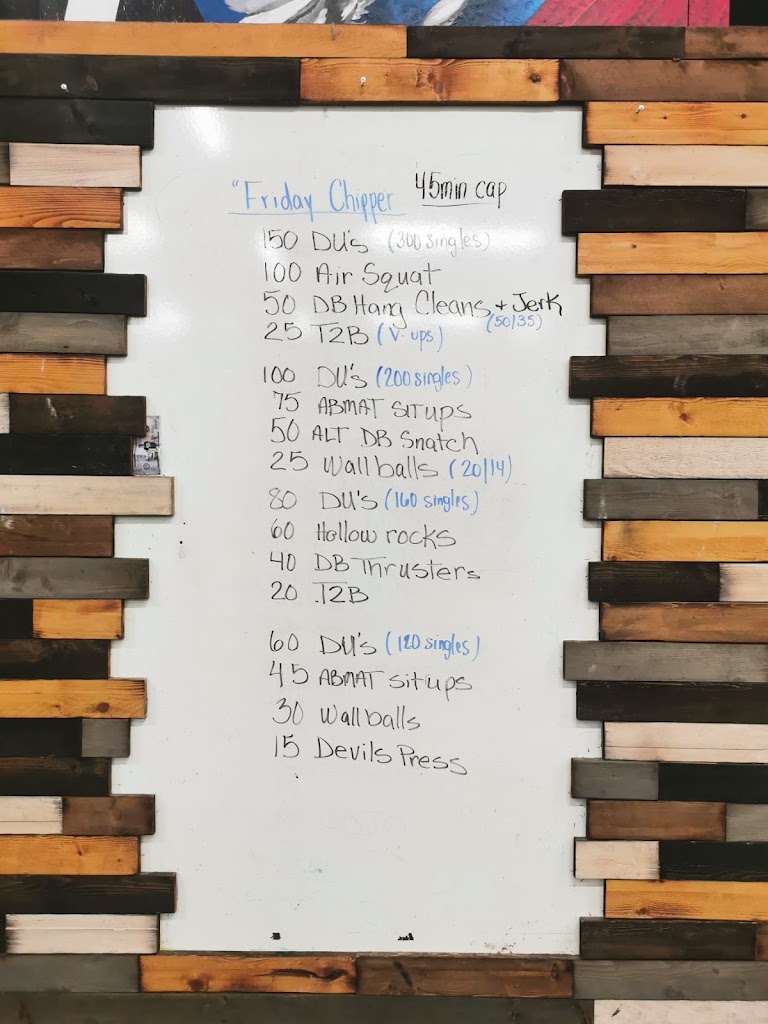 "Friday Chipper 45min cap
150 DU's (300 singles)
100 Air Squat
50 DB Hang Cleans + Jerk
(50/35)
25 T2B (V-ups)
100 DU's (200 singles)
75 ABMAT SITUPS
50 ALT DB Snatch
25 Wall balls (20/14)
80 DU's (160 singles)
60 Hollow rocks
40 DB Thrusters
20 T2B
60 DU's (120 singles)
45 ABMAT situps
30 Wall balls
15 Devils Press